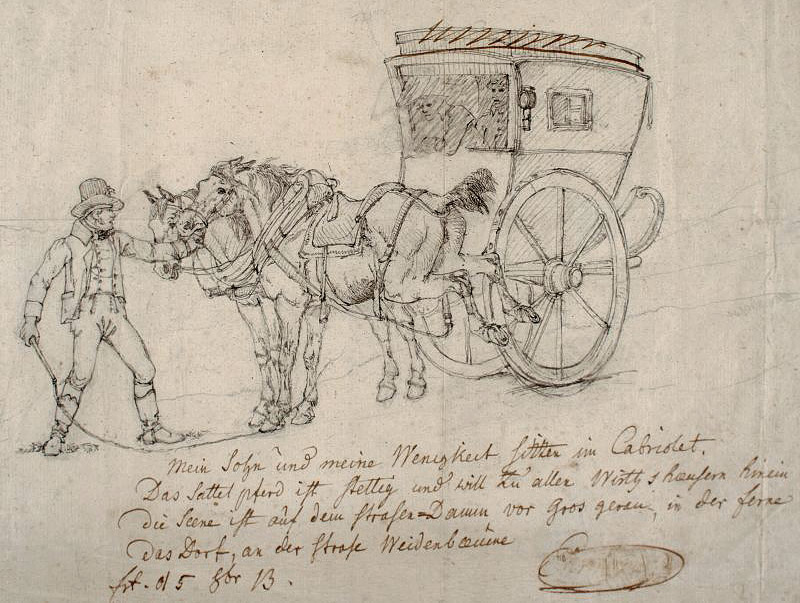 Mein Sohn und meine Wenigkeit sitzen im Cabriolet.
Das Sattel pferd ist stettig und will zu allen Wirths haeusern hinein
die Scene ist auf dem strasen=Damm vor Gros gerau, in der ferne
das Dorf, an der strase Weidenbæume
frt. d 5 8br 13.